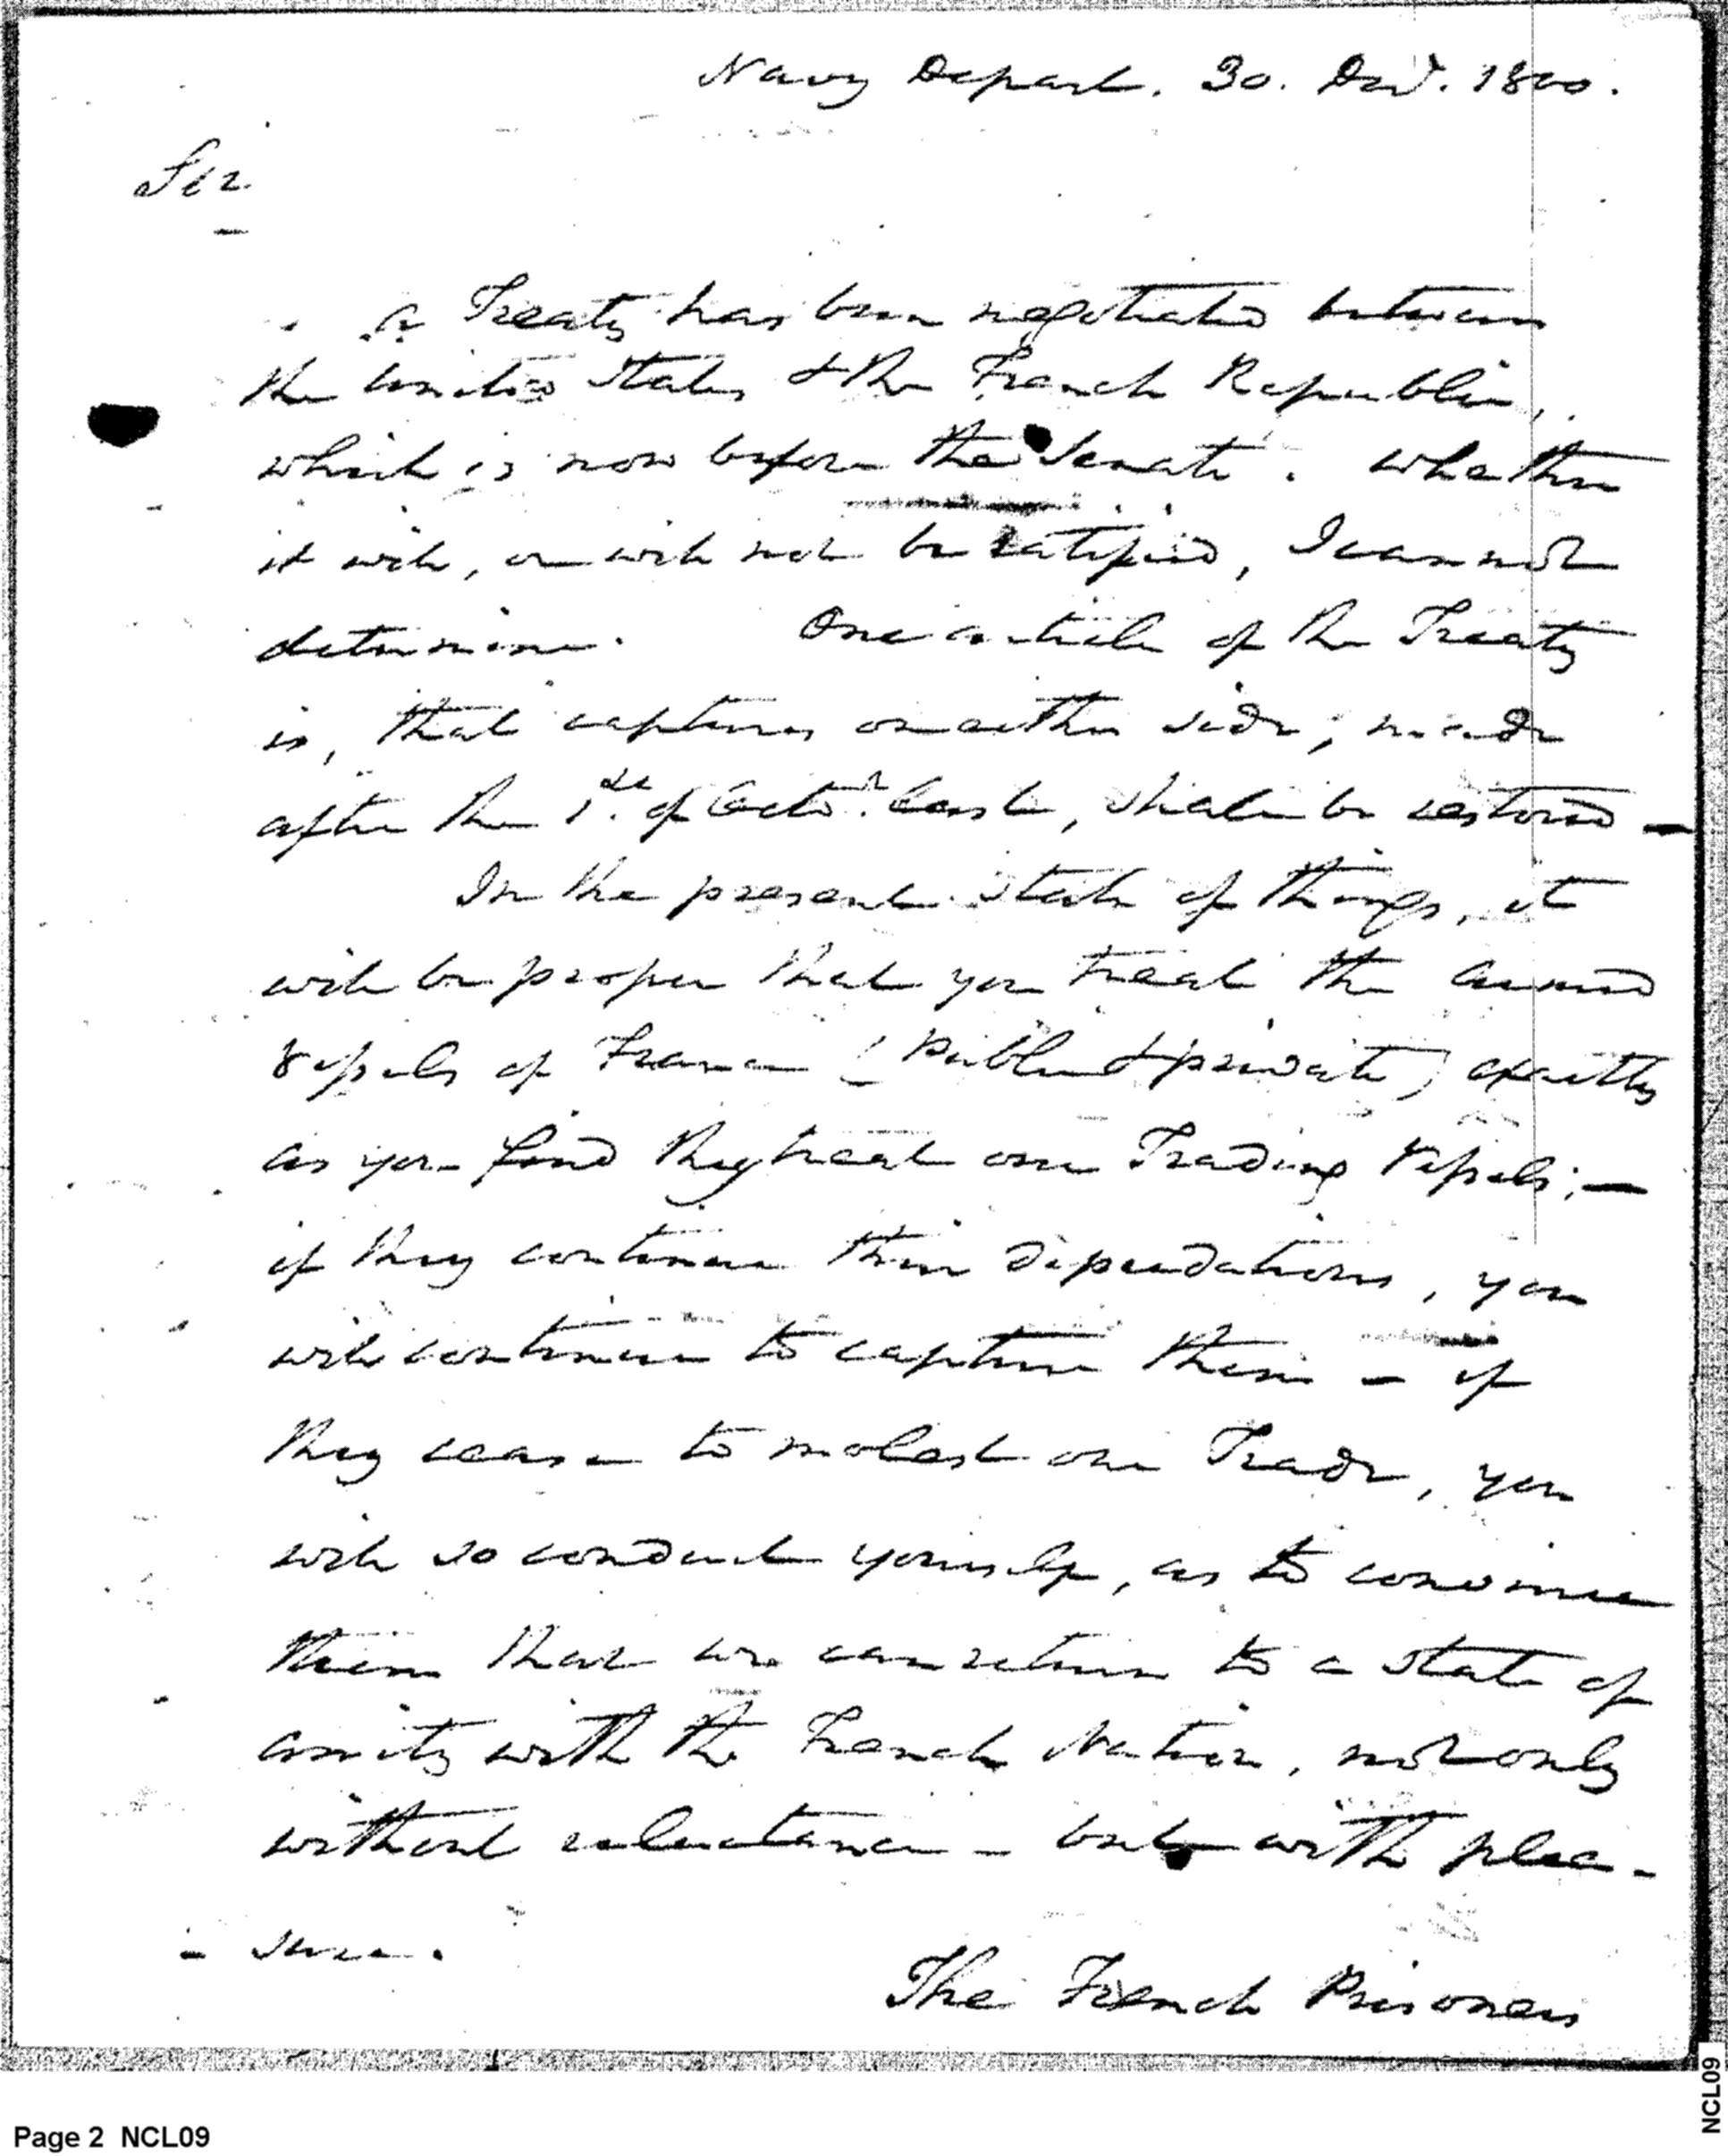 Navy Depart. 30. Decr. 1800.
Sir
A Treaty has been negotiated between
the United States & the French Republic,
which is now before the Senate. Whether
it will, or will not be ratified, I cannot
determine. One article of the Treaty
is, that captures on either side, made
after the 1st. of Octor. last, shall be restored —
In the present state of things, it
will be proper that you treat the armed
Vessels of France (Public & private) exactly
as you find they treat our Trading Vessels; —
if they continue their depredations, you
will continue to capture them — if
they cease to molest our Trade, you
will so conduct yourself, as to convince
them that we can return to a state of
amity with the French Nation, not only
without reluctance — but with plea-
- sure.
The French Prisoners
Page 2 NCL09
NCL09